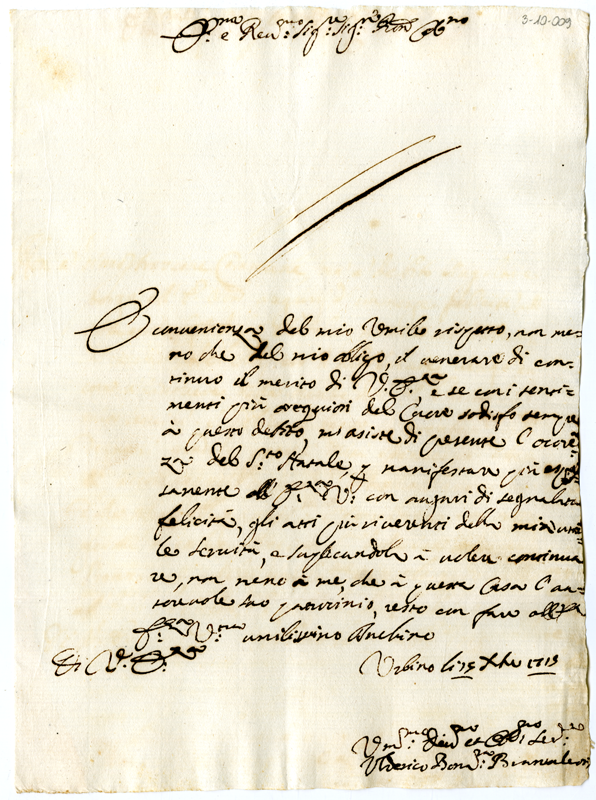 3-10-009
e Reu.mo Sig.re Sig.re
È convenienza del mio Umile rispetto, non me=
no che del mio obligo, il venerare di con=
tinuo il merito di V. e se coi senti=
menti più ossequiosi del Cuore sodisfo sempre
à questo debito, mi asiste di presente l'ocore=
za del S.to Natale, p manifestare più
tanente all V: con auguri di segnalata
felicità, gli atti più riverenti della mia umi=
le servitù, e suplicandola à voler continua
re, non meno à me, che à questa Casa l'au=
torevole suo patrocinio, resto con fare all
V.ra umilissimo Inchino
Di V.
Urbino li 15 Xbre 1713
Um.mo Deu.mo et
Ulderico Bon.